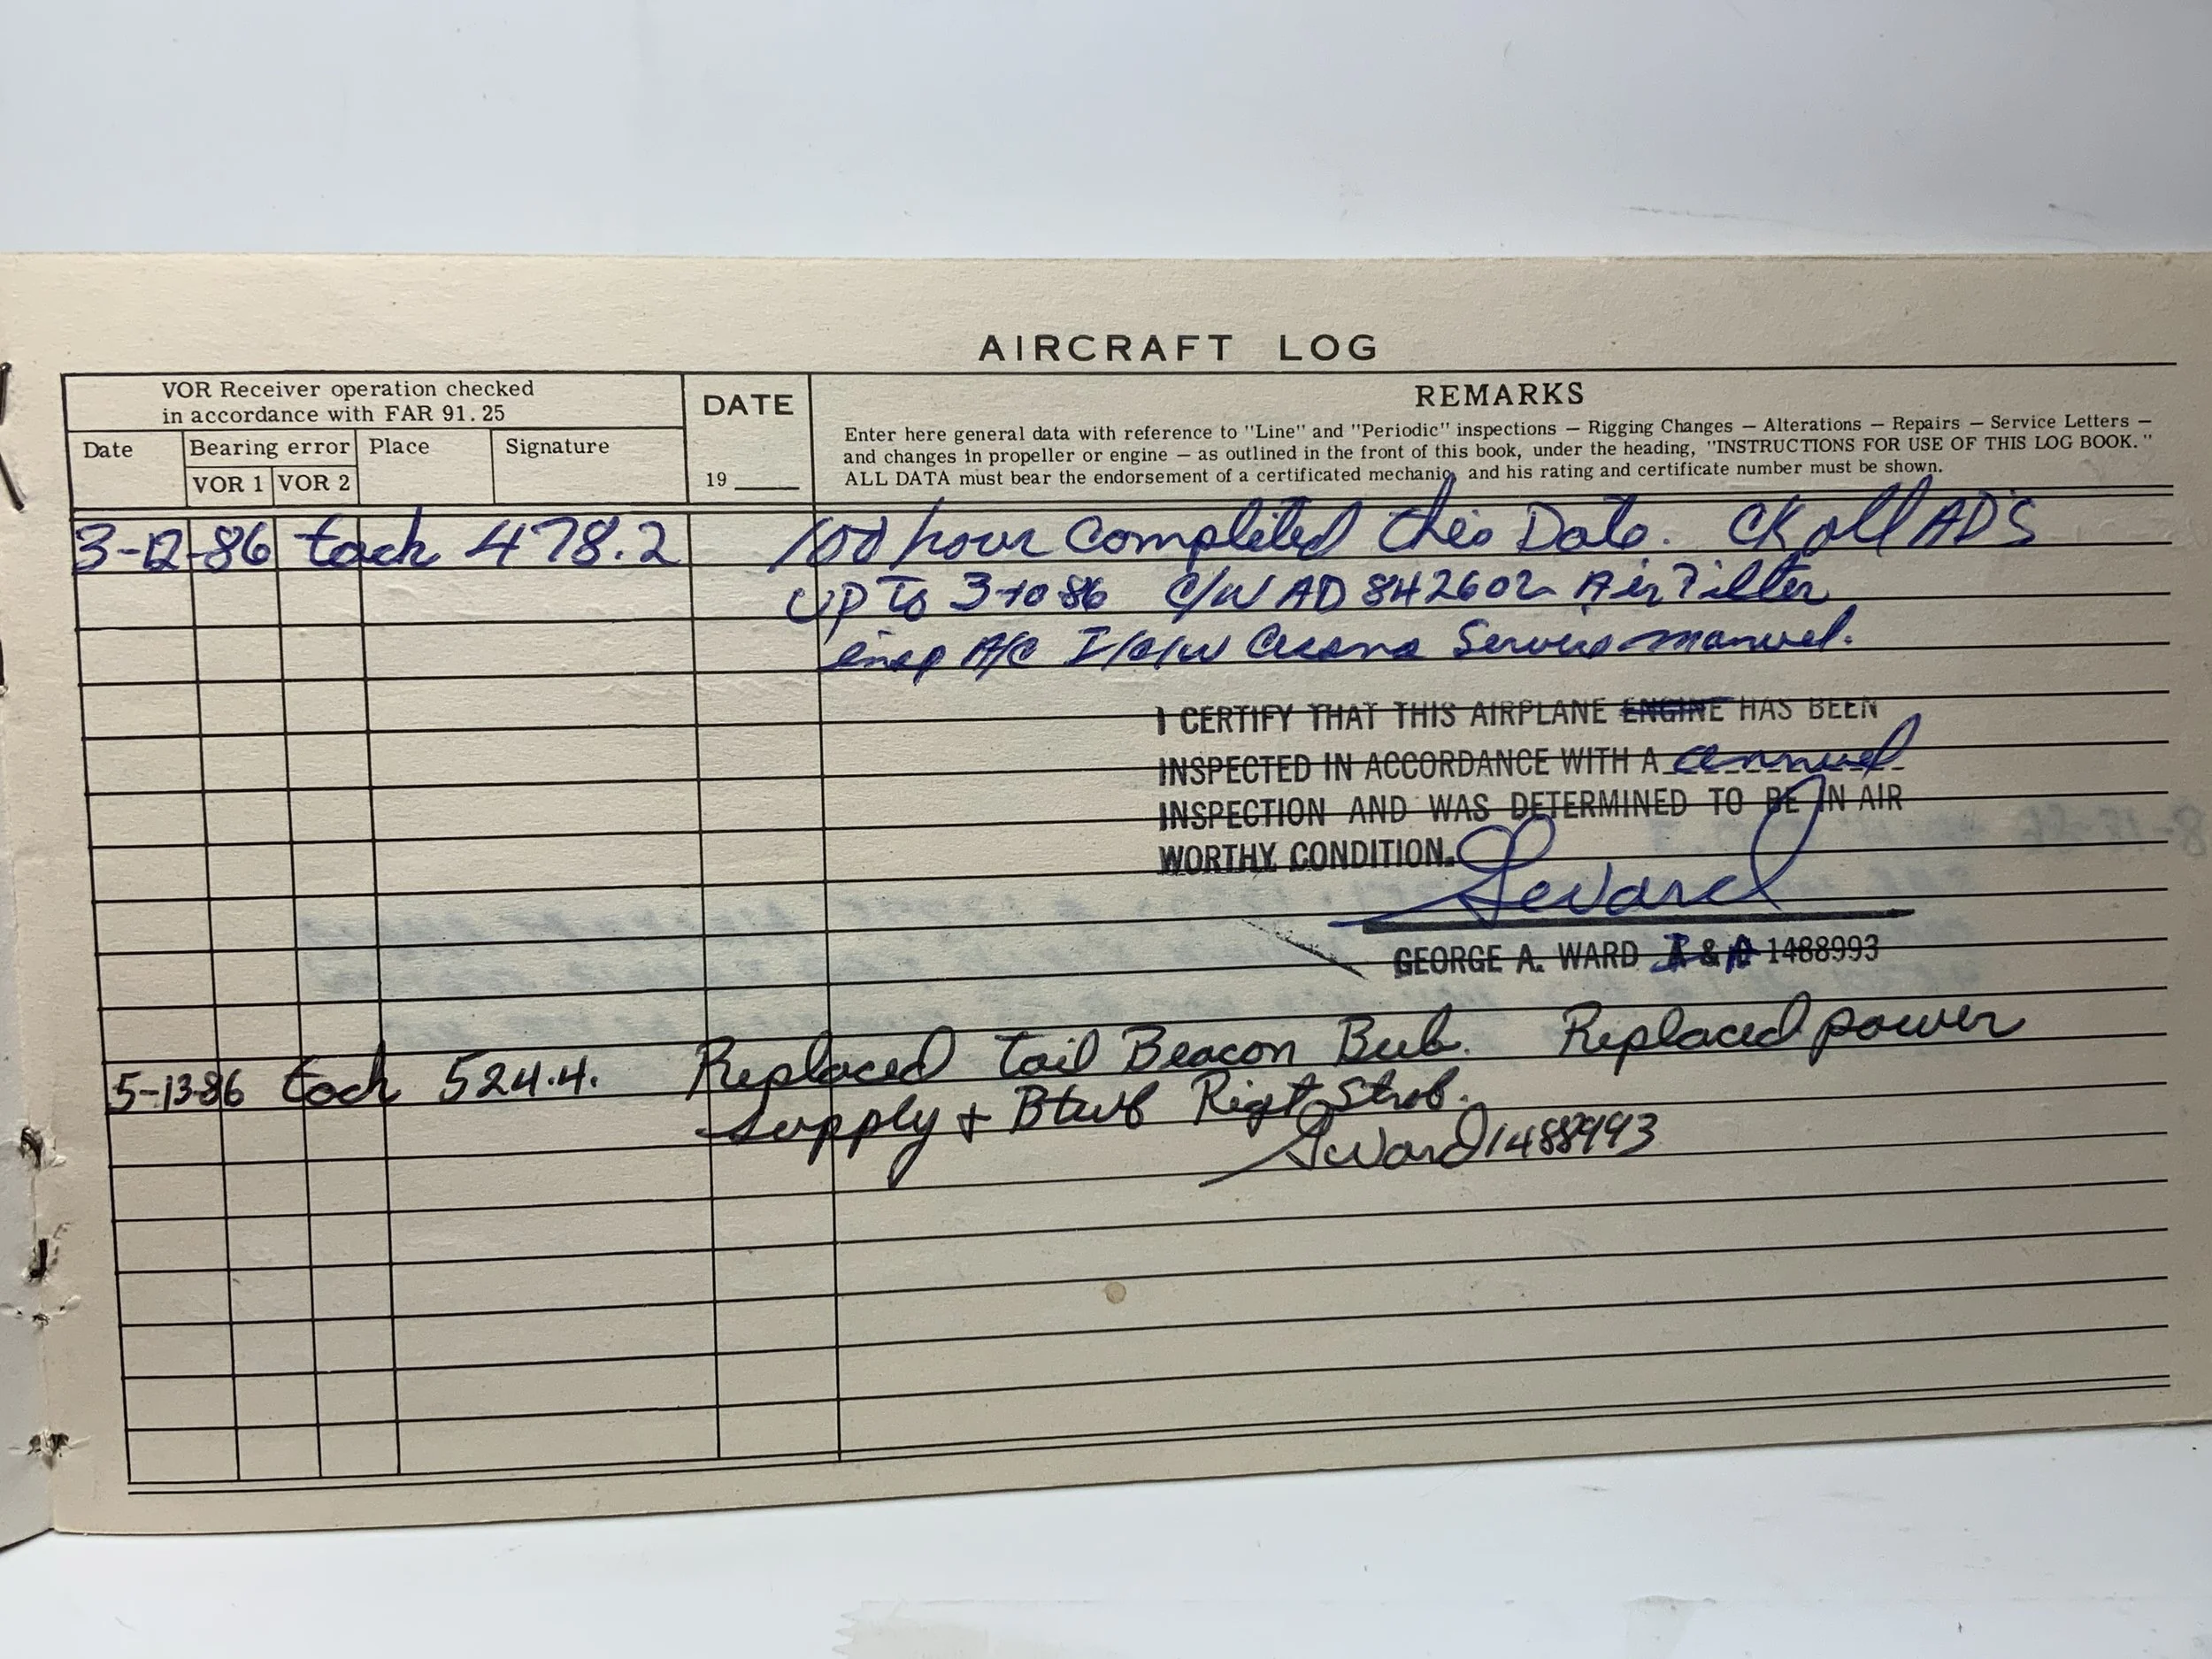 AIRCRAFT LOG
VOR Receiver operation checked
in accordance with FAR 91.25
Date
Bearing error
VOR 1 VOR 2
Place
Signature
DATE
19 ____
REMARKS
Enter here general data with reference to "Line" and "Periodic" inspections — Rigging Changes — Alterations — Repairs — Service Letters —
and changes in propeller or engine — as outlined in the front of this book, under the heading, "INSTRUCTIONS FOR USE OF THIS LOG BOOK."
ALL DATA must bear the endorsement of a certificated mechanic, and his rating and certificate number must be shown.
3-12-86 tach 478.2 100 hour completed this Date. CK all AD'S
UP To 3-10-86 C/W AD 842602 Air Filter
insp A/C I/A/W Cessna Service manuel.
I CERTIFY THAT THIS AIRPLANE ENGINE HAS BEEN
INSPECTED IN ACCORDANCE WITH A annuel
INSPECTION AND WAS DETERMINED TO BE IN AIR
WORTHY CONDITION.
GWard
GEORGE A. WARD I & A 1488993
5-13-86 tach 524.4. Replaced tail Beacon Bub. Replaced power
supply + Right Strob.
GWard 1488993